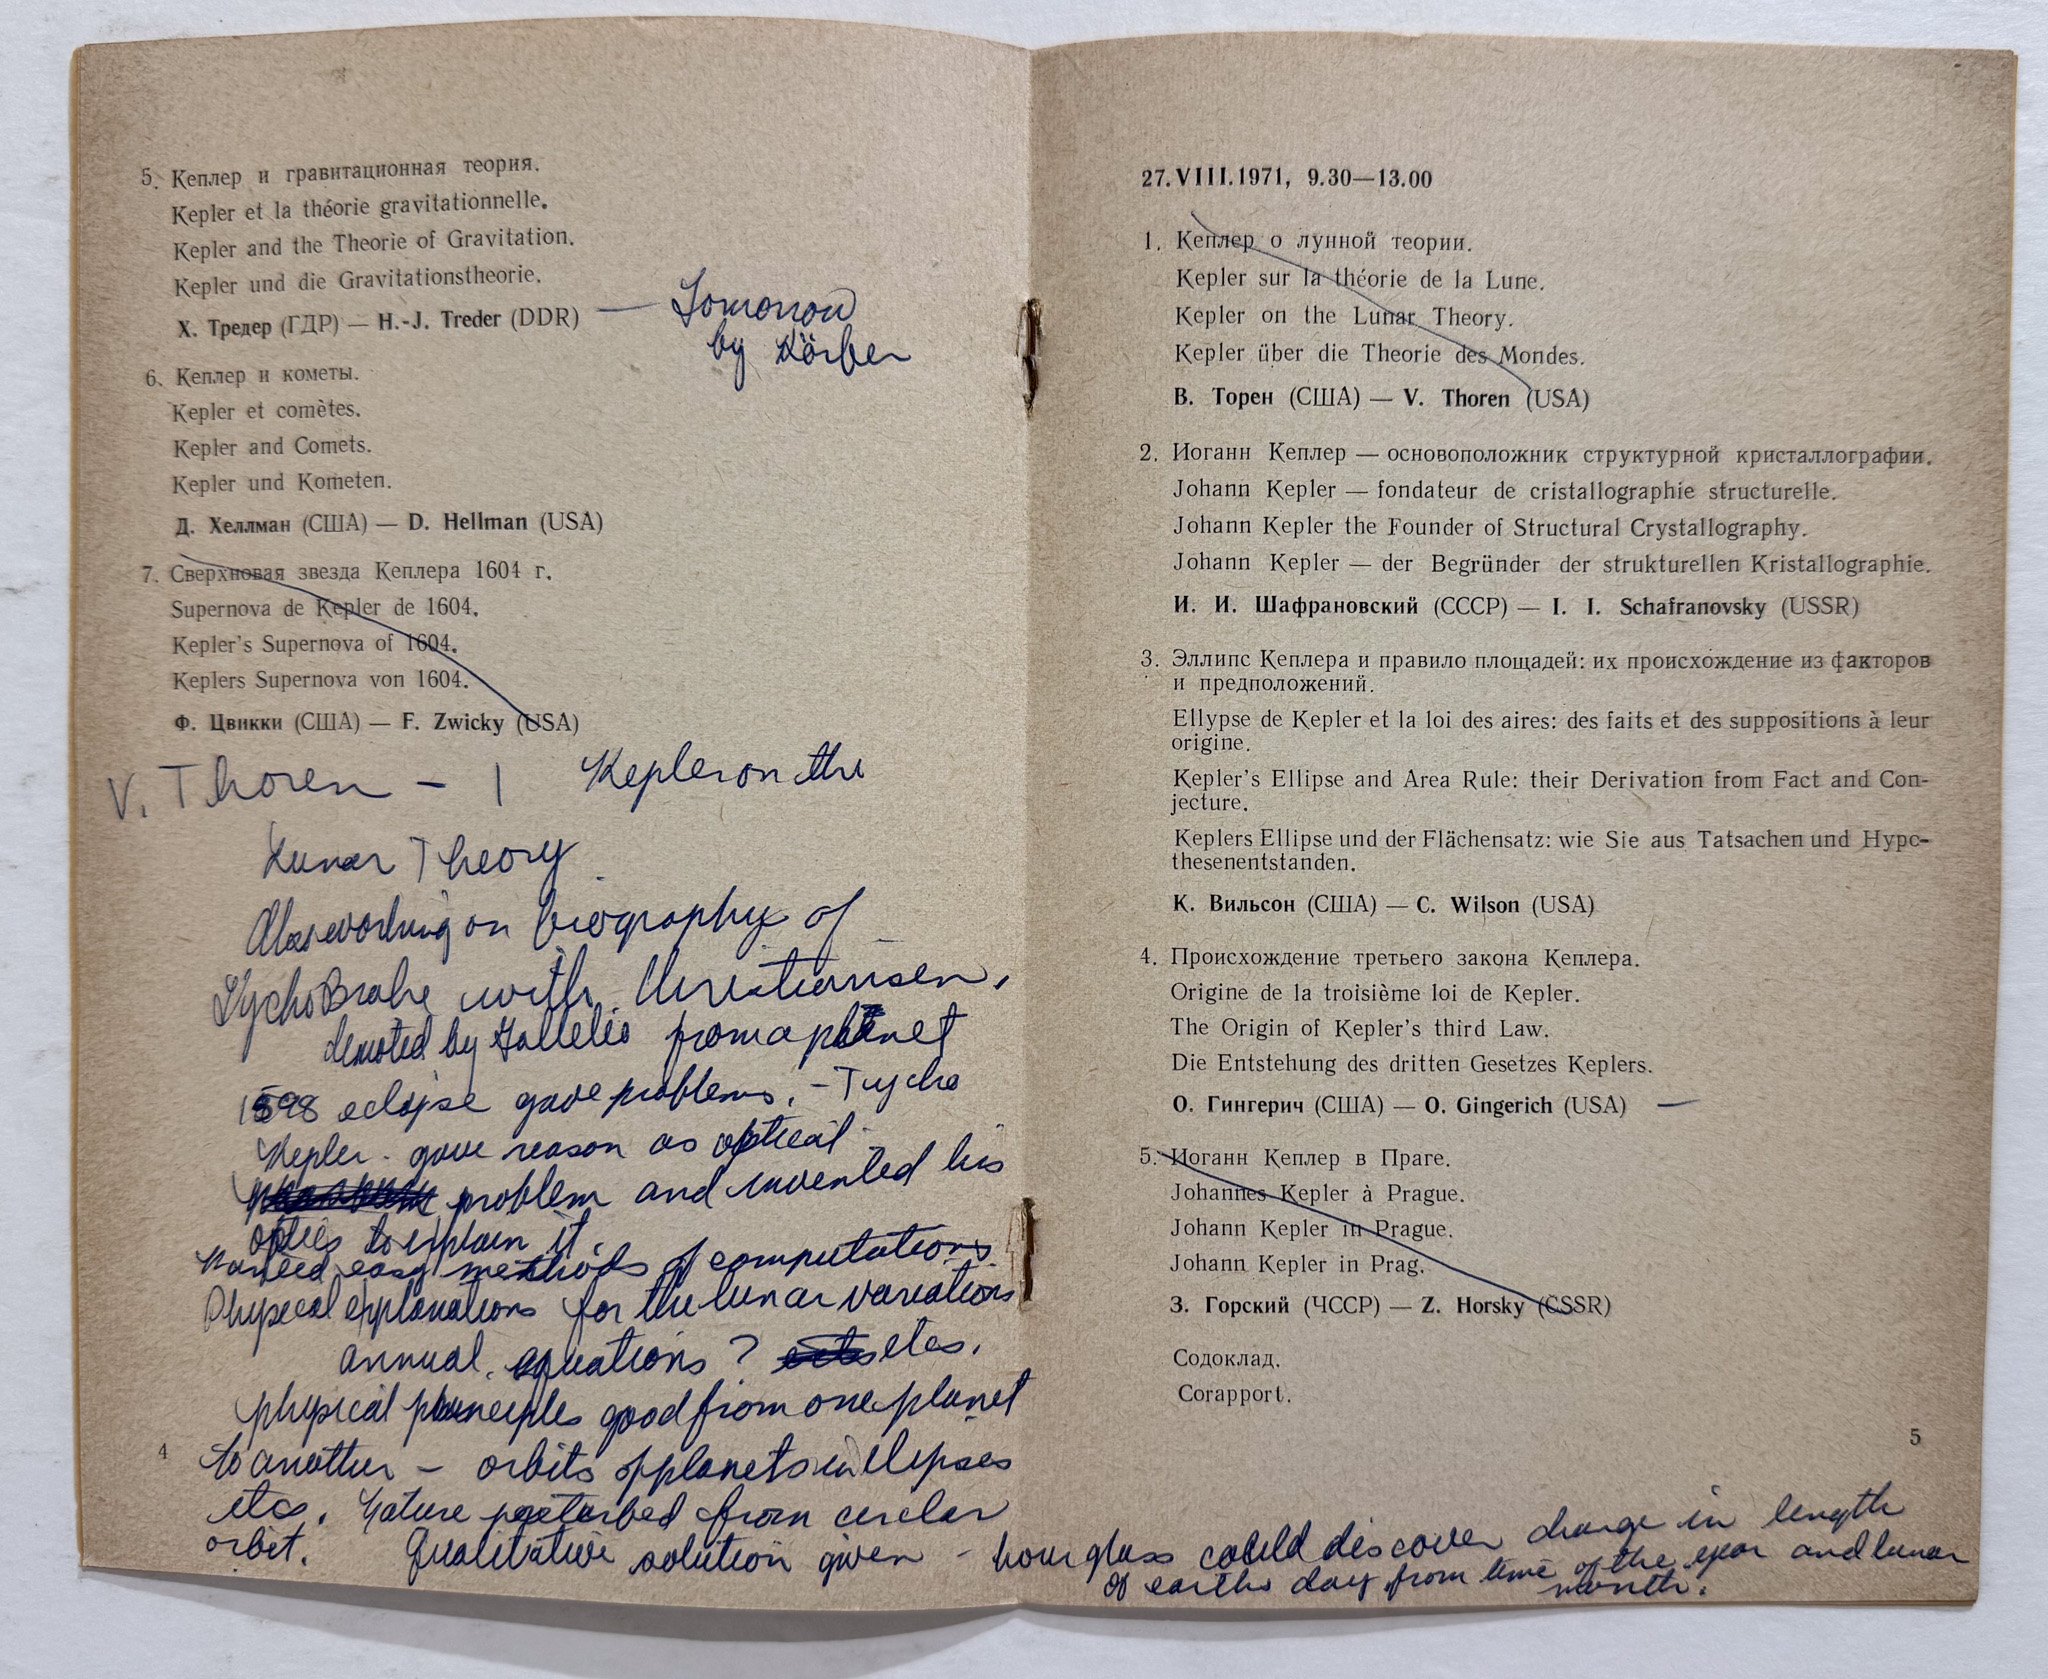 5. Кеплер и гравитационная теория.
Kepler et la théorie gravitationnelle.
Kepler and the Theorie of Gravitation.
Kepler und die Gravitationstheorie.
Х. Тредер (ГДР) — H.-J. Treder (DDR) — Tomorrow
by Körber
6. Кеплер и кометы.
Kepler et comètes.
Kepler and Comets.
Kepler und Kometen.
Д. Хеллман (США) — D. Hellman (USA)
7. Сверхновая звезда Кеплера 1604 г.
Supernova de Kepler de 1604.
Kepler's Supernova of 1604.
Keplers Supernova von 1604.
Ф. Цвикки (США) — F. Zwicky (USA)
V. Thoren — 1 Kepler on the
Lunar Theory
Also working on biography of
Tycho Brahe with Christiansen,
demoted by Gallelio from a planet
1598 eclipse gave problems. - Tycho
Kepler - gave reason as optical
problem and invented his
optics to explain it.
Wanted easy methods of computations
Physical explanations for the lunar variations
annual equations? etcs.
physical principles good from one planet
to another — orbits of planets in elipses
etcs. Nature perturbed from circular
orbit. Qualitative solution given - hour glass could discover change in length
of earths day from time of the year and lunar
month.
4
27.VIII.1971, 9.30—13.00
1. Кеплер о лунной теории.
Kepler sur la théorie de la Lune.
Kepler on the Lunar Theory.
Kepler über die Theorie des Mondes.
В. Торен (США) — V. Thoren (USA)
2. Иоганн Кеплер — основоположник структурной кристаллографии.
Johann Kepler — fondateur de cristallographie structurelle.
Johann Kepler the Founder of Structural Crystallography.
Johann Kepler — der Begründer der strukturellen Kristallographie.
И. И. Шафрановский (СССР) — I. I. Schafranovsky (USSR)
3. Эллипс Кеплера и правило площадей: их происхождение из факторов
и предположений.
Ellypse de Kepler et la loi des aires: des faits et des suppositions à leur
origine.
Kepler's Ellipse and Area Rule: their Derivation from Fact and Con-
jecture.
Keplers Ellipse und der Flächensatz: wie Sie aus Tatsachen und Hypc-
thesenentstanden.
К. Вильсон (США) — C. Wilson (USA)
4. Происхождение третьего закона Кеплера.
Origine de la troisième loi de Kepler.
The Origin of Kepler's third Law.
Die Entstehung des dritten Gesetzes Keplers.
О. Гингерич (США) — O. Gingerich (USA) —
5. Иоганн Кеплер в Праге.
Johannes Kepler à Prague.
Johann Kepler in Prague.
Johann Kepler in Prag.
З. Горский (ЧССР) — Z. Horsky (ČSSR)
Содоклад.
Corapport.
5